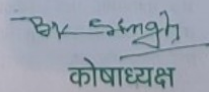 BK Singh
कोषाध्यक्ष